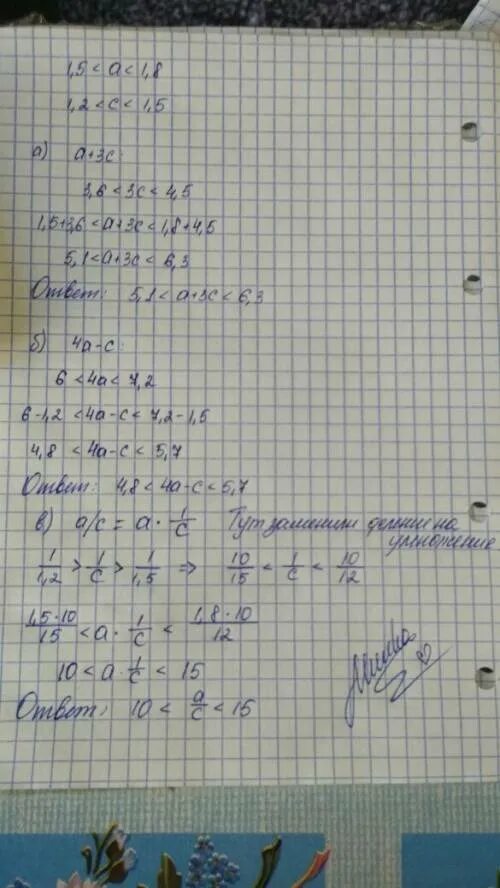 1,5 < a < 1,8
1,2 < c < 1,5
а) a+3c:
3,6 < 3c < 4,5
1,5+3,6 < a+3c < 1,8+4,5
5,1 < a+3c < 6,3
Ответ: 5,1 < a+3c < 6,3
б) 4a-c:
6 < 4a < 7,2
6-1,2 < 4a-c < 7,2-1,5
4,8 < 4a-c < 5,7
Ответ: 4,8 < 4a-c < 5,7
в) a/c = a · 1/c Тут заменили деление на
умножение
1/1,2 > 1/c > 1/1,5 ⇒ 10/15 < 1/c < 10/12
1,5·10/15 < a · 1/c < 1,8·10/12
10 < a · 1/c < 15
Ответ: 10 < a/c < 15